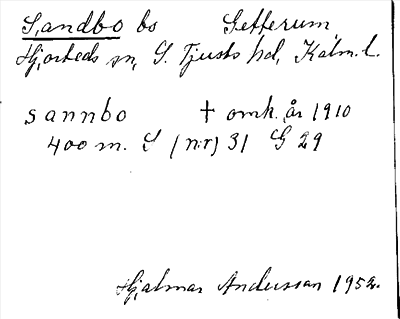 Sandbo bs Getterum
Hjorteds sn, S. Tjusts hd, Kalm. l.
sannbo † omk. år 1910
400 m. S (nr) 31 G 29
Hjalmar Andersson 1952.